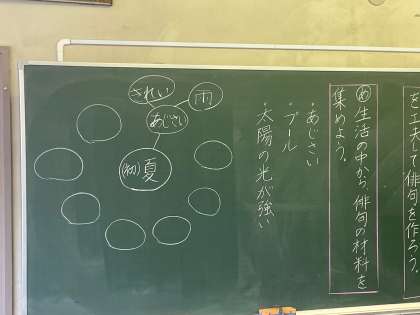 をエ夫して俳句を作ろう。
め 生活の中から、俳句の材料を
集めよう。
・あじさい
・プール
・太陽の光が強い
きれい
雨
あじさい
(初)夏